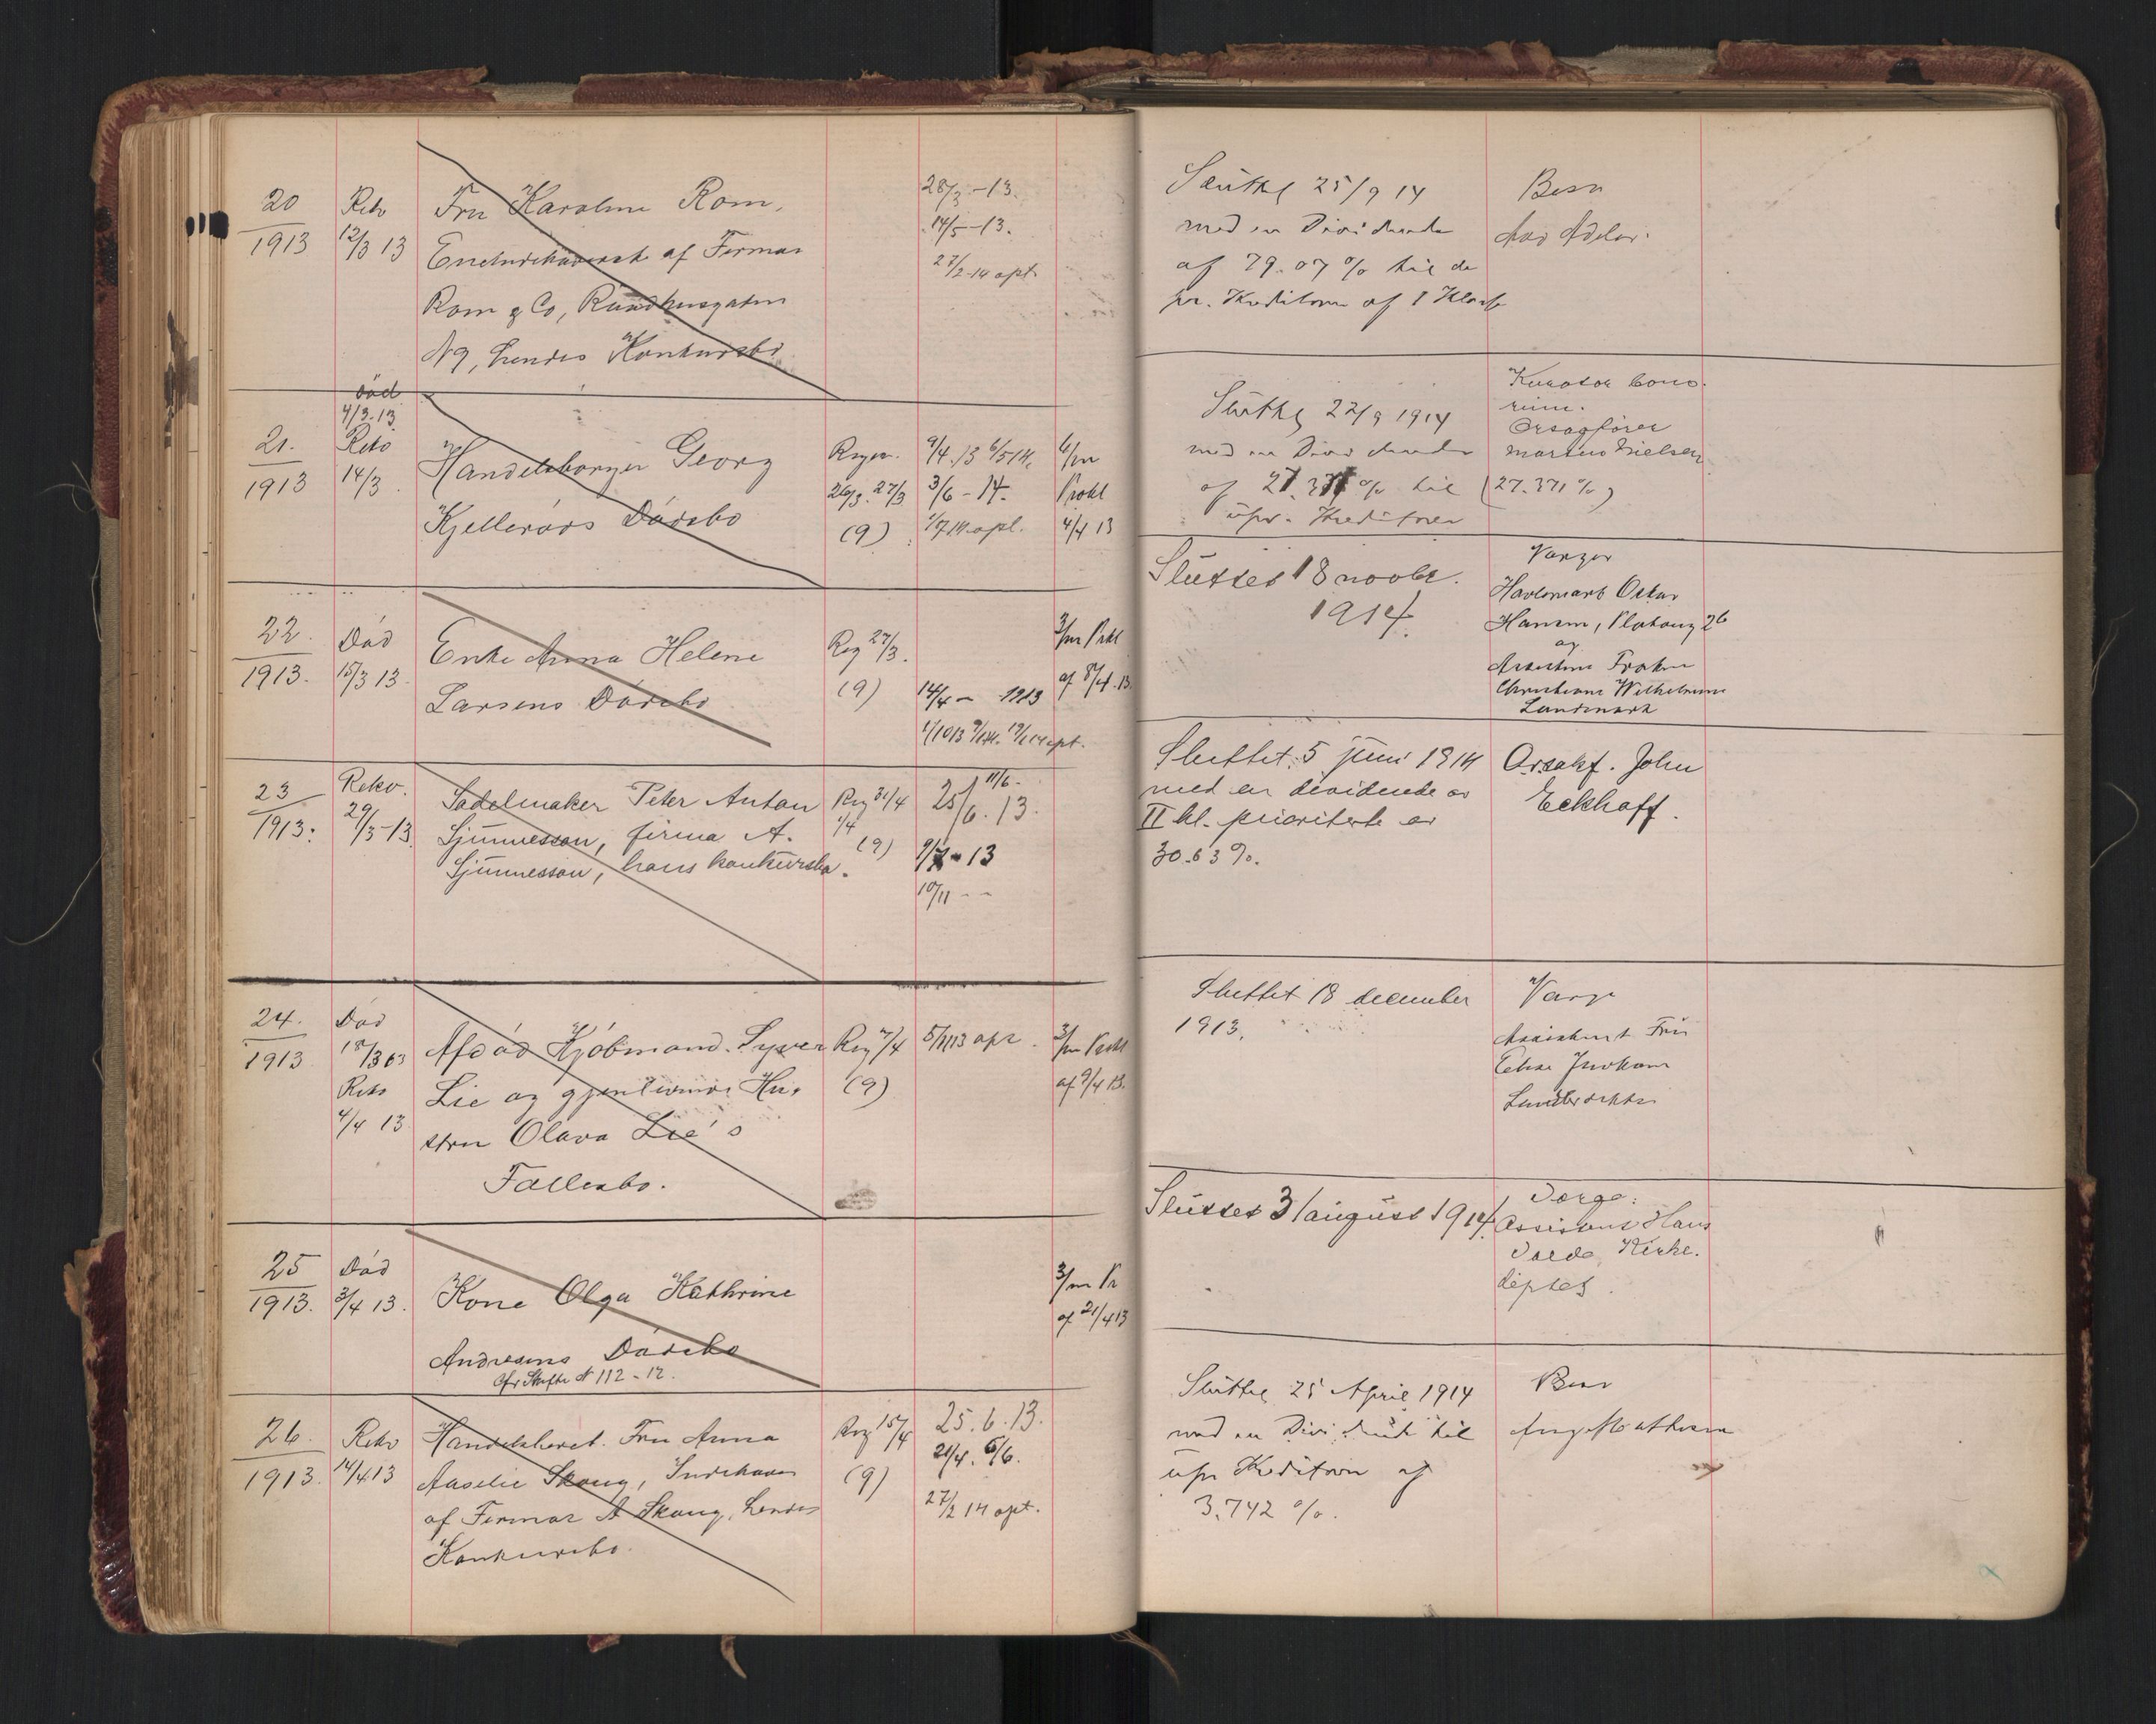 20
1913
Rekv
12/3 13
Fru Karoline Rom,
Eneindehaverset af Firmaet
Rom & Co, Raadhusgaten
N 9, hendes Konkursbo
28/3 - 13.
14/5 - 13.
27/2 - 14 opt.
Sluttet 25/9 14
med en Dividende
af 79.07 % til de
pr. Kreditorer af I Klasse
21.
1913
død
4/3.13
Rekv
14/3.
Handelsborger Georg
Kjelleraas Dødsbo
26/3. 27/3
(9)
9/4.13 6/5 14.
3/6 - 14.
1/7 14. opt.
6/m
Prokl
4/4 13
Sluttet 22/9 1914
med en Dividende
af 27.371 % til
upr. Kreditorer
Kurator bono-
rum.
Orsagfører
Martus Nielsen
(27.371 %)
22.
1913.
Død
15/3 13.
Enke Anna Helene
Larsens Dødsbo
Reg 27/3.
(9)
14/4 - 1913
3/m Prkl
af 8/4.13.
Sluttet 18 novbr.
1914.
Værger
Oskar
Hansen, Platoug 26
og
Frøken
Wilhelmine
Landmark
23
1913.
Rekv.
29/3-13
Sadelmaker Peter Anton
Sjunnesson, firma A.
Sjunnesson, hans konkursbo.
Reg 31/4
1/4
(9)
11/6.
25/6.13.
9/7-13
10/11 - -
Sluttet 5 juni 1914
med en dividende av
II kl. prioriterte av
30.63 %.
Orsakf. John
Eckhoff.
24.
1913
Død
18/3 03
Rekv
4/4 13
Afdød Kjøbmand Syver
Lie og gjenlevende Hu-
stru Olava Lie's
Fællesbo.
Reg 7/4
(9)
5/11 13 opt.
3/m Prokl
af 9/4 13.
Sluttet 18 december
1913.
Værge
Assistent Fru
25
1913.
Død
3/4 13.
Kone Olga Kathrine
Andresens Dødsbo
cfr Skifte N 112 - 12.
3/m Pr
af 21/4 13
Sluttet 31 august 1914.
Værge:
Assistent Hans
Kirke.
deptet.
26.
1913.
Rekv
14/4 13
Handelsberet. Fru Anna
Aaselie Skoug, Indehaver
af Firmaet A Skoug, hendes
Konkursbo.
Reg 15/4
(9)
25.6.13.
21/4. 6/6.
27/2 14 opt.
Sluttet 25 April 1914
med en Dividende til
upr Kreditorer af
3.742 %.